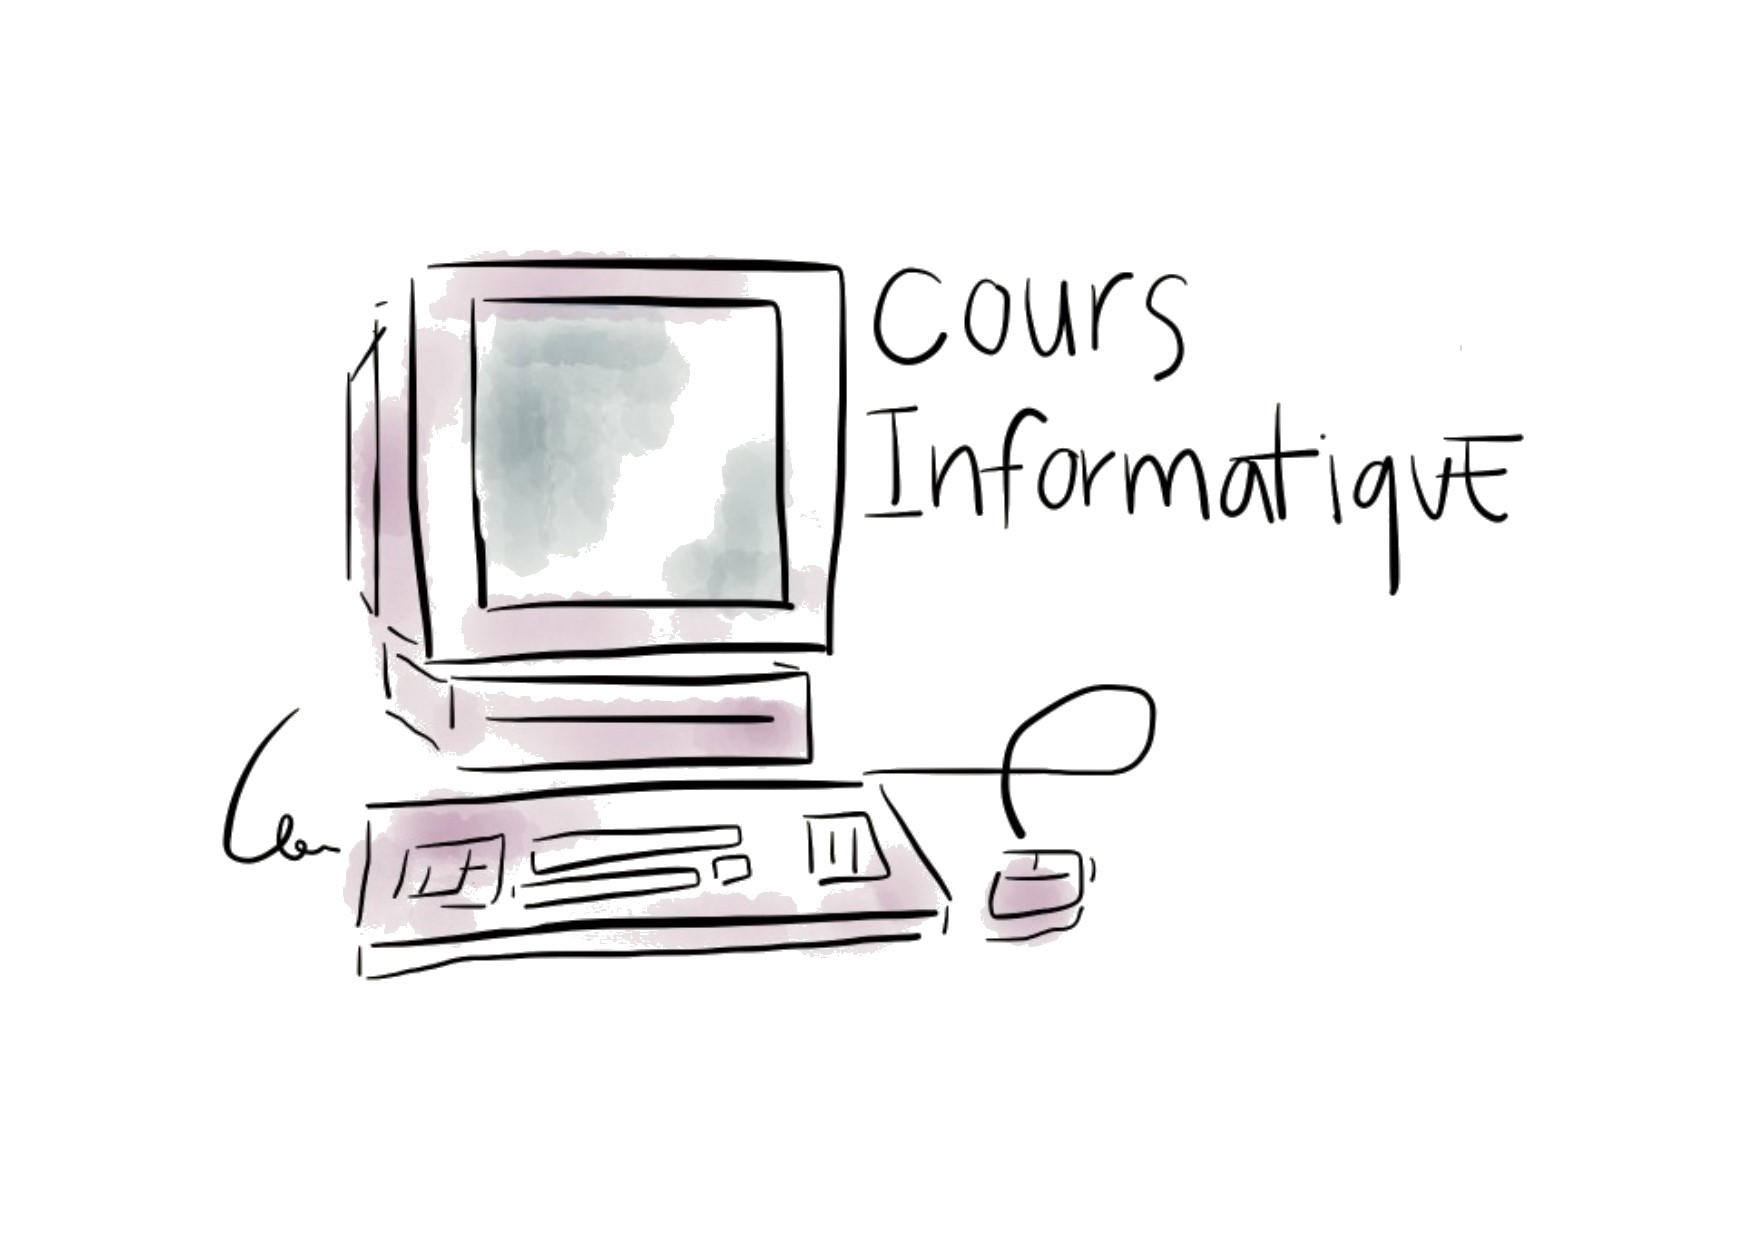 Cours
InformatiquE